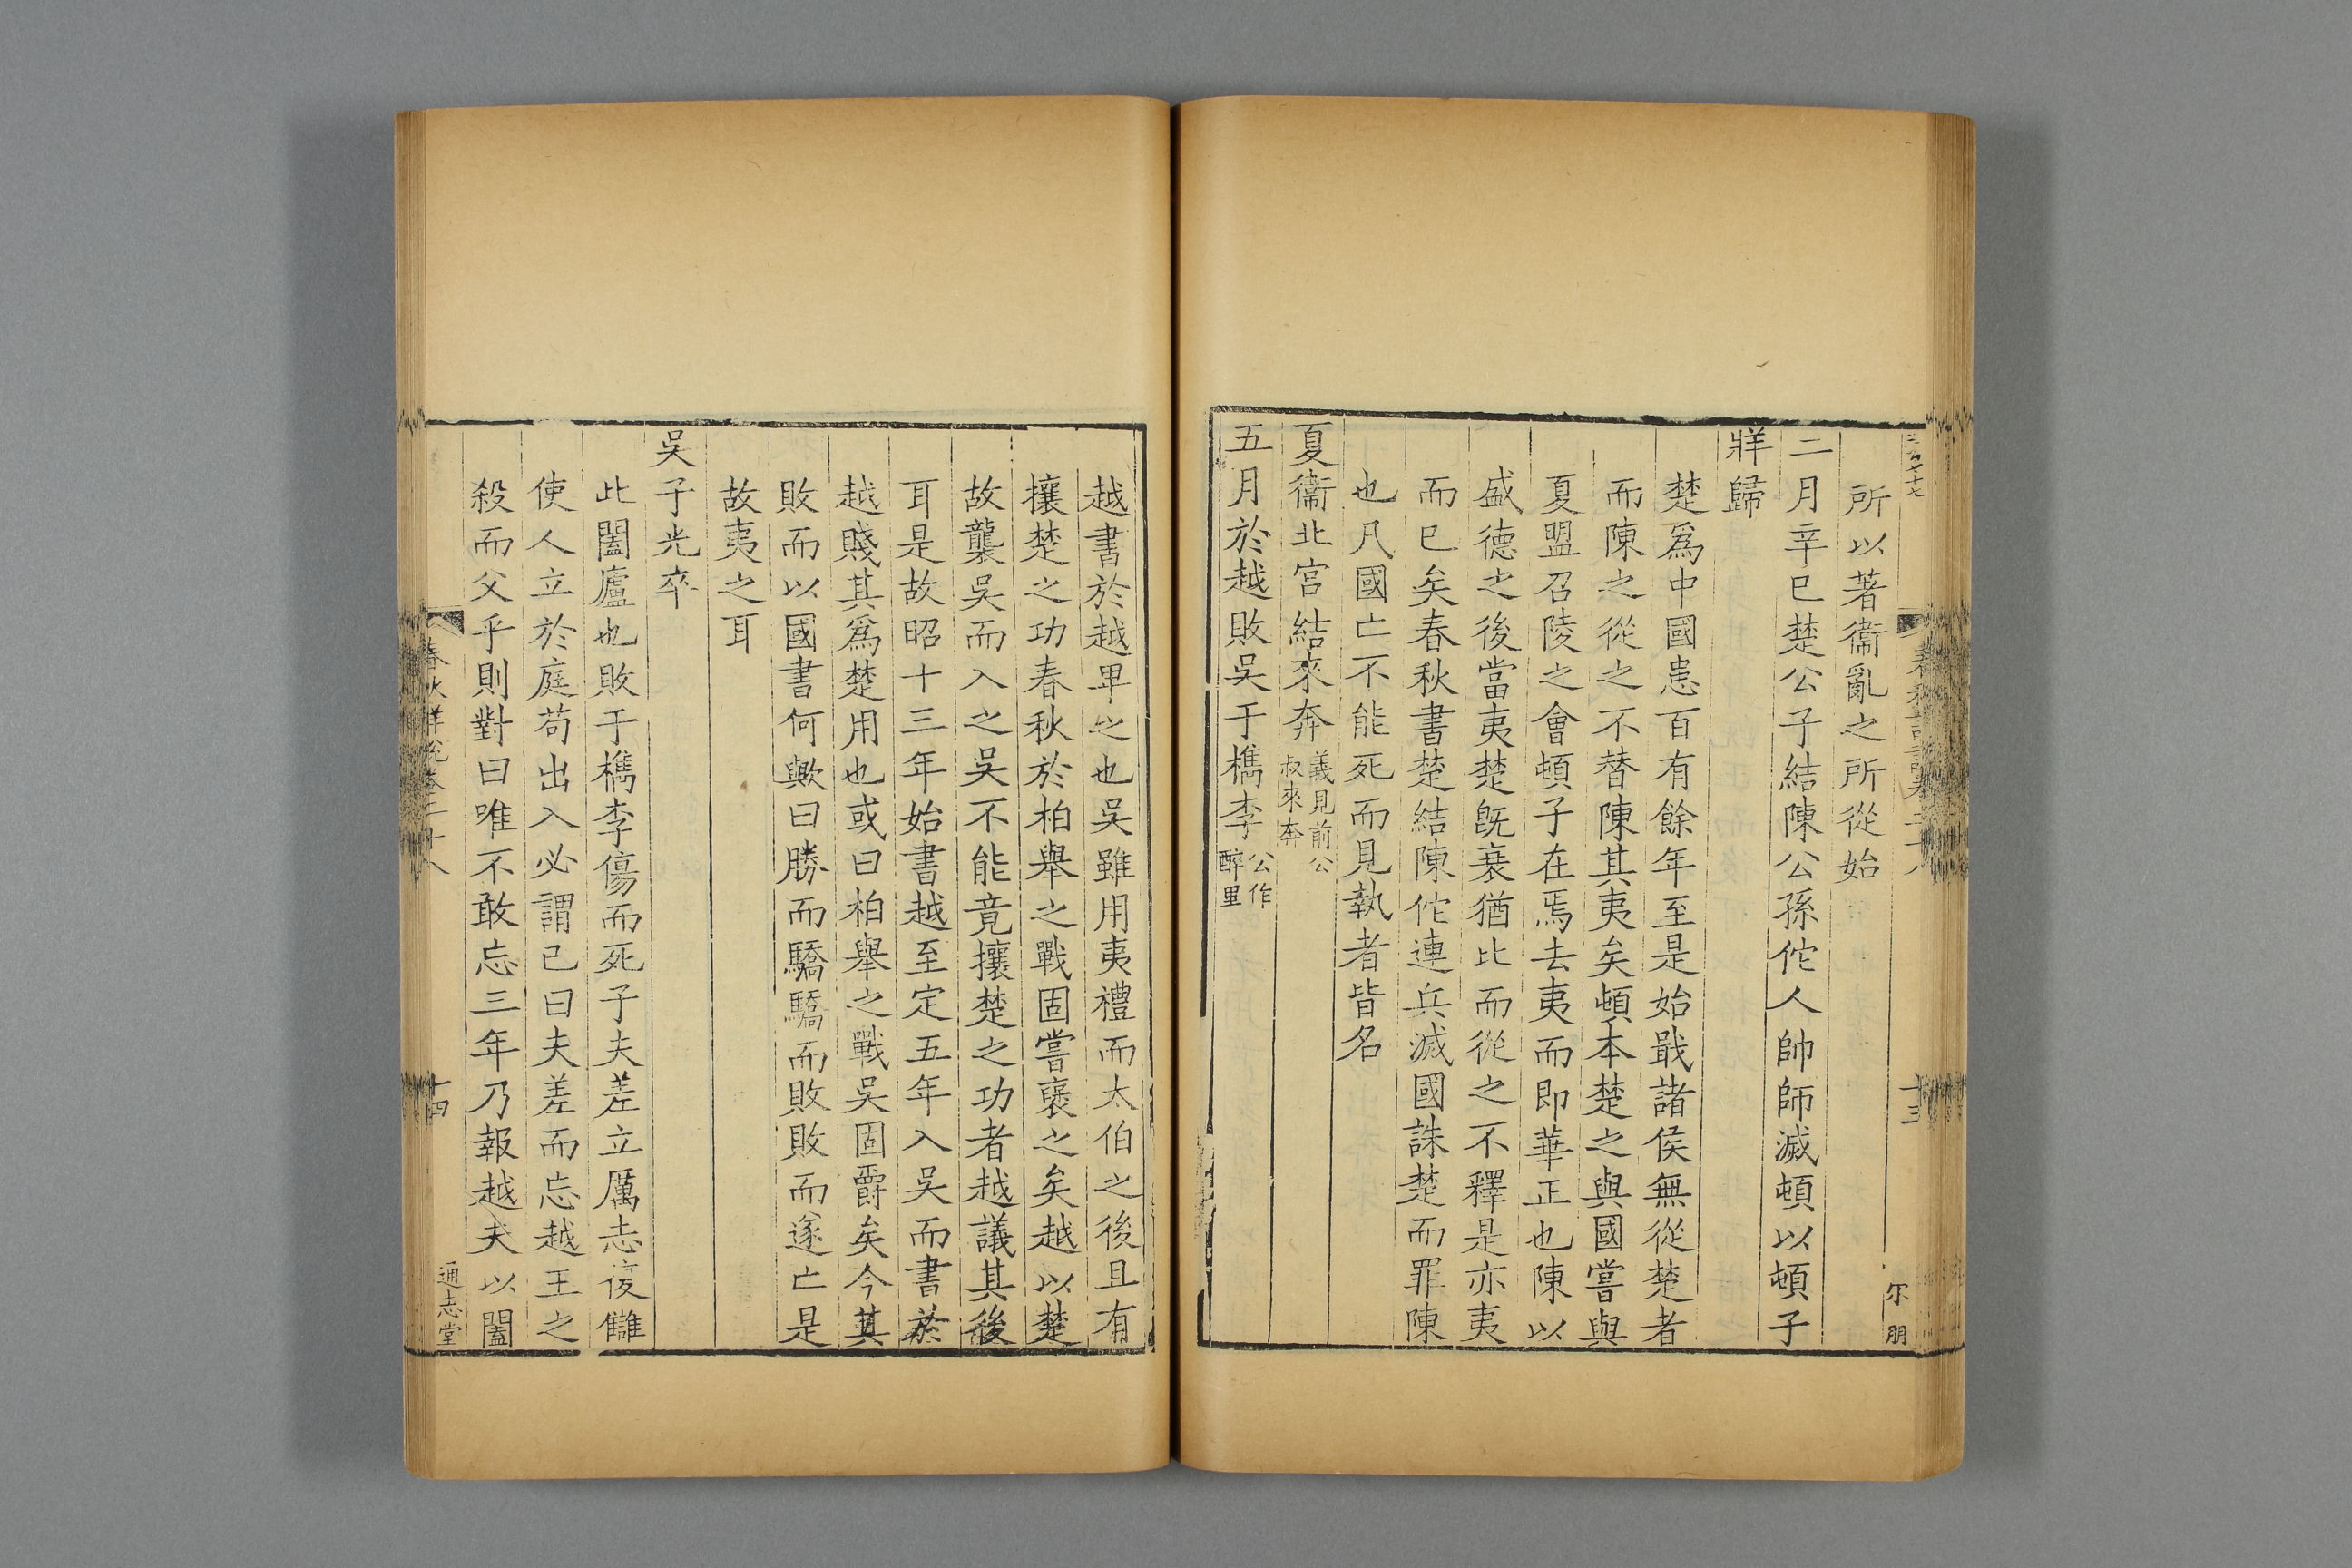 所以著衞亂之所從始
二月辛巳楚公子結陳公孫佗人帥師滅頓以頓子
牂歸
楚爲中國患百有餘年至是始戢諸侯無從楚者
而陳之從之不替陳其夷矣頓本楚之與國嘗與
夏盟召陵之會頓子在焉去夷而即華正也陳以
盛德之後當夷楚旣衰猶比而從之不釋是亦夷
而巳矣春秋書楚結陳佗連兵滅國誅楚而罪陳
也凡國亡不能死而見執者皆名
夏衞北宮結來奔 義見前公
叔來奔
五月於越敗吳于檇李 公作
醉里
十三
尔朋
越書於越卑之也吳雖用夷禮而太伯之後且有
攘楚之功春秋於柏舉之戰固嘗襃之矣越以楚
故襲吳而入之吳不能竟攘楚之功者越議其後
耳是故昭十三年始書越至定五年入吳而書於
越賤其爲楚用也或曰柏舉之戰吳固爵矣今其
敗而以國書何歟曰勝而驕驕而敗敗而遂亡是
故夷之耳
吳子光卒
此闔廬也敗于檇李傷而死子夫差立厲志復讎
使人立於庭苟出入必謂己曰夫差而忘越王之
殺而父乎則對曰唯不敢忘三年乃報越夫以闔
春秋詳說卷二十八
十四
通志堂